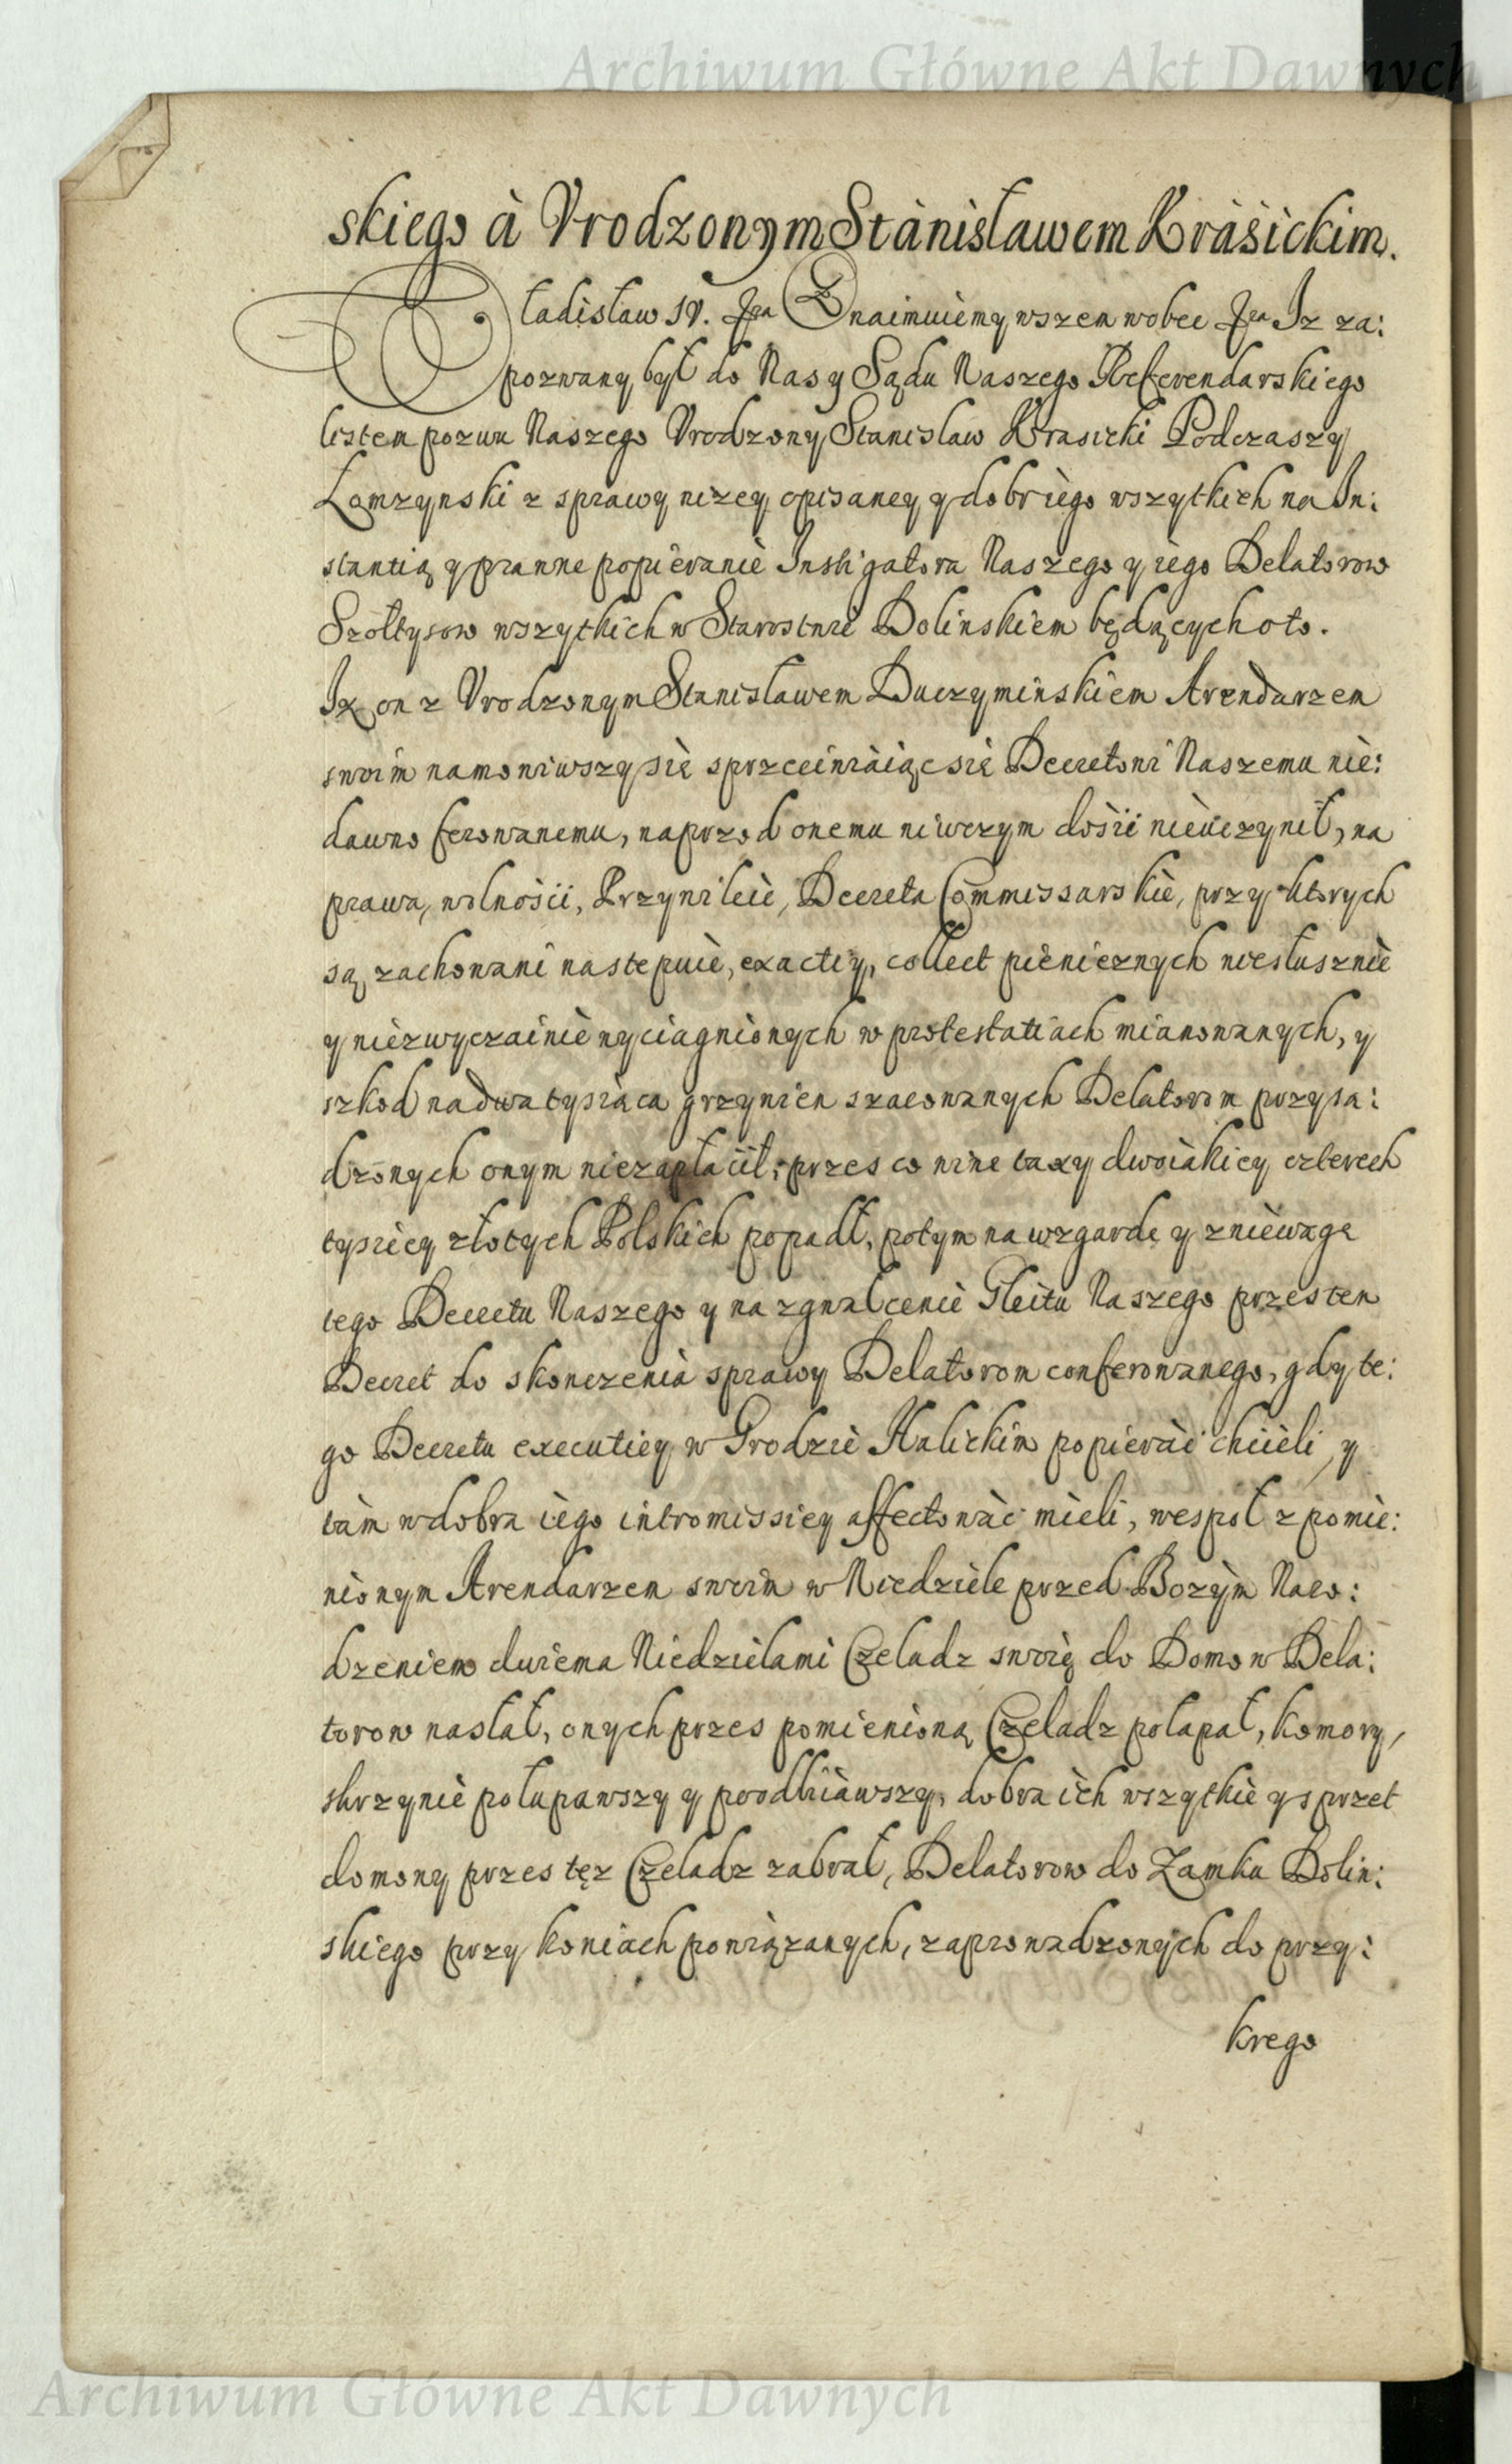 Archiwum Główne Akt Dawnych
skiego à Vrodzonym Stànisławem Kràsickim.
Władisław IV. &ca Oznaimuiemy wszem wobec &ca Iz za:
pozwany był do Nas y Sądu Naszego Referendarskiego
listem pozwu Naszego Vrodzony Stanislaw Krasicki Podczaszy
Łomzynski z sprawy nizey opisaney y dobr iego wszytkich na In:
stantią y prawne popieranie Instigatora Naszego y iego Delatorow
Szołtysow wszytkich w Starostwie Dolinskiem będących oto.
Iz on z Vrodzonym Stanisławem Duczyminskiem Arendarzem
swoim namowiwszy się sprzeciwiàiąc się Decretowi Naszemu nie:
dawno ferowanemu, naprzod onemu niwczym dosić nieuczynił, na
prawa, wolności, Przywileie, Decreta Commissarskie, przy ktorych
są zachowani nastepuie, exactiy, collect pienięznych niesłusznie
y niezwyczainie wyciągnionych w protestatiach mianowanych, y
szkod na dwa tysiąca grzywien szacowanych Delatorom przysą:
dzonych onym niezapłacił; przes co winę taxy dwoiakiey czterech
tysięcy złotych Polskich popadł, potym na wzgardę y zniewagę
tego Decretu Naszego y na zgwałcenie Gleitu Naszego przes ten
Decret do skonczenia sprawy Delatorom conferowanego, gdy te:
go Decretu executiey w Grodzie Halickim popierać chcieli, y
tàm w dobra iego intromissiey affectowàć mieli, wespoł z pomie:
nionym Arendarzem swoim w Niedziele przed Bozym Naro:
dzeniem dwiema Niedzielami Czeladz swoię do Domow Dela:
torow nasłał, onych przes pomienioną Czeladz połapał, komory,
skrzynie połupawszy y poodbiiawszy, dobra ich wszytkie y sprzet
domowy przes tęz Czeladz zabrał, Delatorow do Zamku Dolin:
skiego przy koniach powiązanych, zaprowadzonych do przy:
krego
Archiwum Główne Akt Dawnych